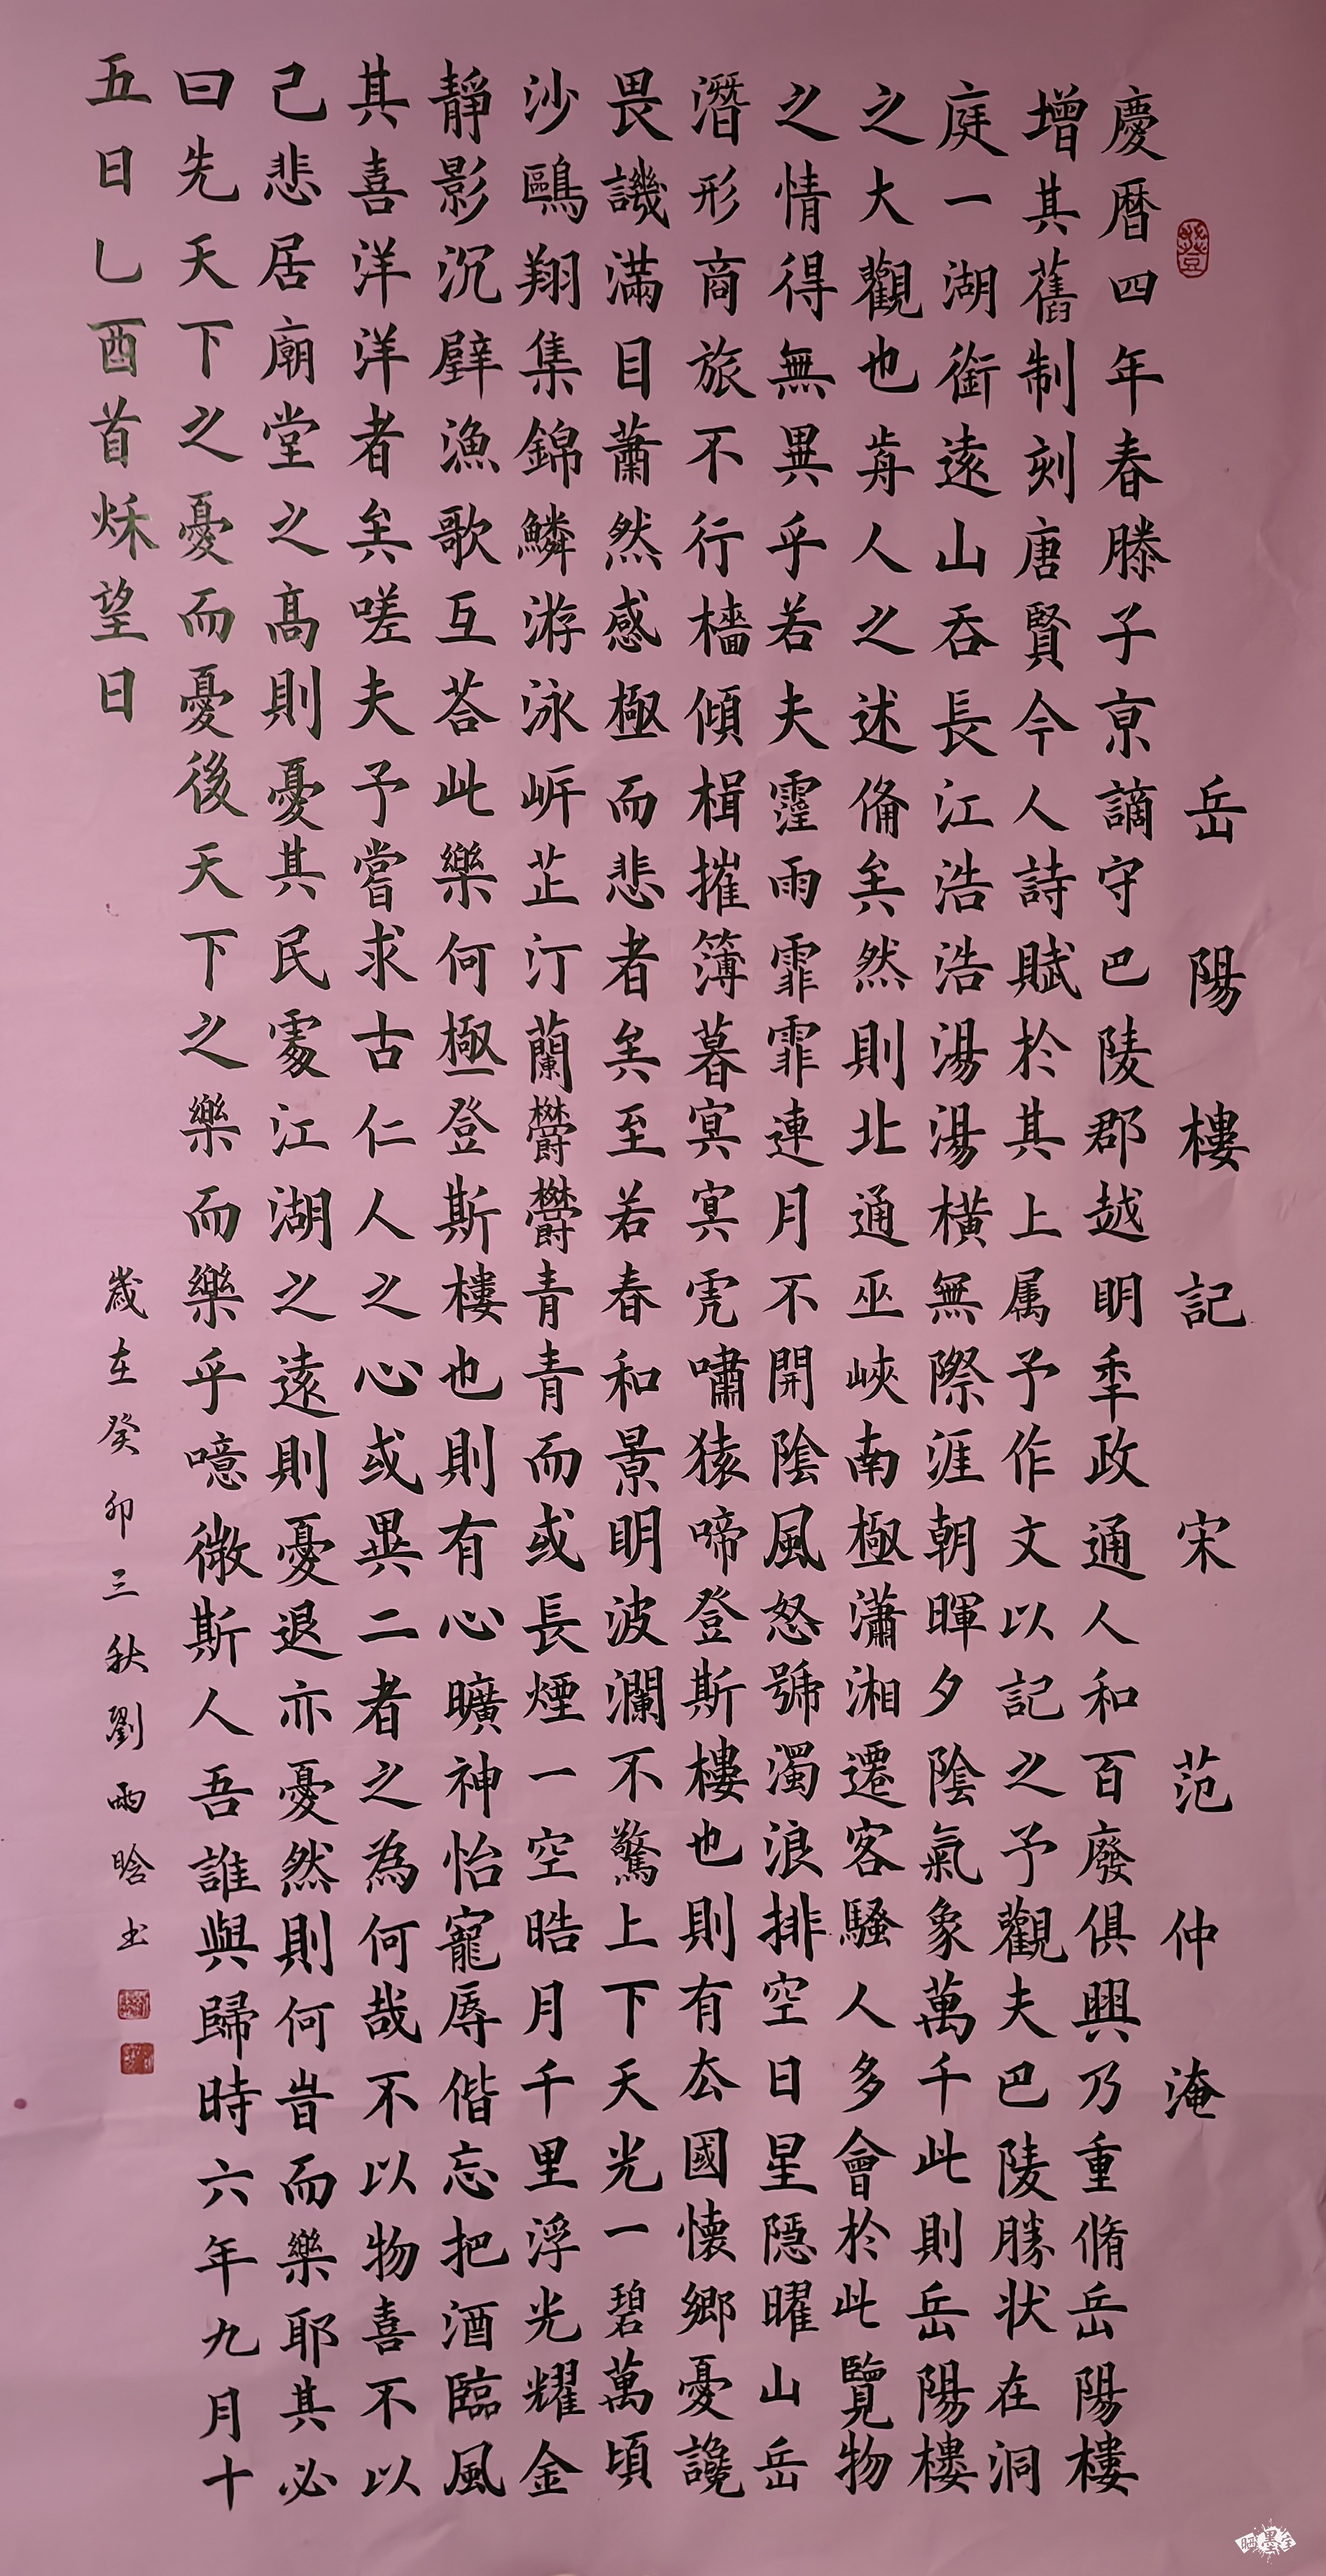 岳陽樓記 宋 范仲淹
慶暦四年春滕子亰謫守巴陵郡越明秊政通人和百廢俱興乃重脩岳陽樓
增其舊制刻唐賢今人詩賦於其上属予作文以記之予觀夫巴陵勝状在洞
庭一湖銜遠山吞長江浩浩湯湯橫無際涯朝暉夕陰氣象萬千此則岳陽樓
之大觀也歬人之述俻矣然則北通巫峽南極瀟湘遷客騷人多會於此覽物
之情得無異乎若夫霪雨霏霏連月不開陰風怒號濁浪排空日星隱曜山岳
潛形商旅不行檣傾楫摧簿暮冥冥虎嘯猿啼登斯樓也則有去國懷鄉憂讒
畏譏滿目蕭然感極而悲者矣至若春和景明波瀾不驚上下天光一碧萬頃
沙鷗翔集錦鱗游泳岸芷汀蘭欝欝青青而或長煙一空皓月千里浮光耀金
靜影沉璧漁歌互荅此樂何極登斯樓也則有心曠神怡寵辱偕忘把酒臨風
其喜洋洋者矣嗟夫予嘗求古仁人之心或異二者之為何哉不以物喜不以
己悲居廟堂之高則憂其民處江湖之遠則憂退亦憂然則何旹而樂耶其必
曰先天下之憂而憂後天下之樂而樂乎噫微斯人吾誰與歸時六年九月十
五日乙酉首秌望日
歲在癸卯三秋劉雨晗书
晒墨宝